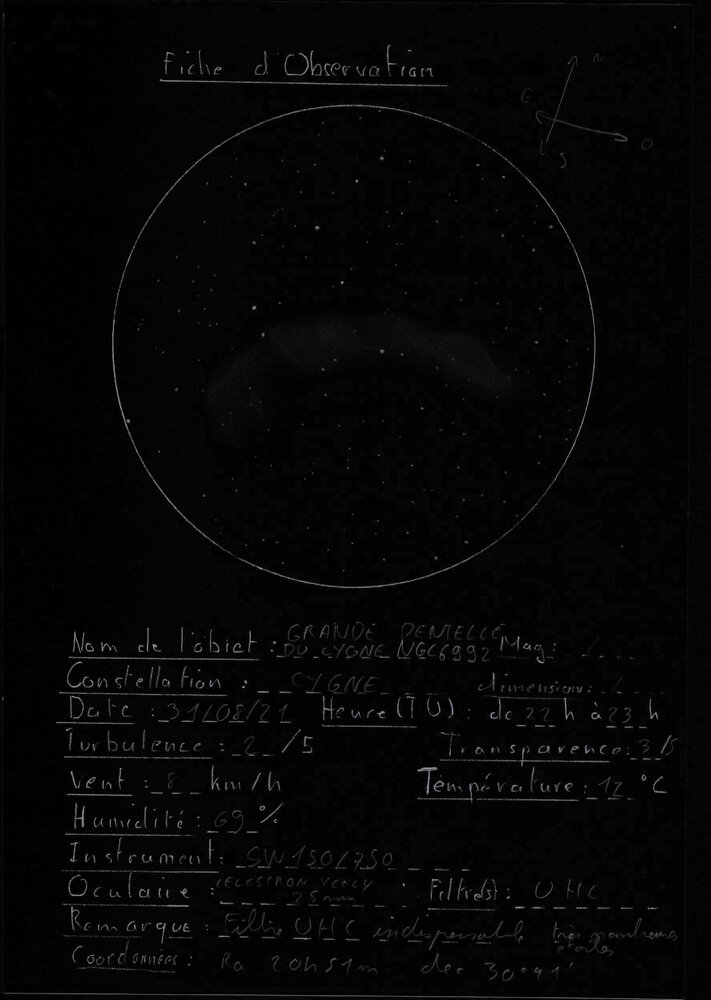 Fiche d'Observation
N
E
O
S
GRANDE DENTELLE
Nom de l'objet : DU CYGNE NGC6992 Mag: /
Constellation : CYGNE dimension: /
Date : 31/08/21 Heure (TU) : de 22 h à 23 h
Turbulence : 2 /5 Transparence: 3/5
Vent : 8 km/h Température : 12 °C
Humidité : 69 %
Instrument: SW150/750
CELESTRON
Oculaire : 25mm Filtre(s) : UHC
Remarque : Filtre UHC indispensable très nombreuses
étoiles
Coordonnées : Ra 20h51m dec